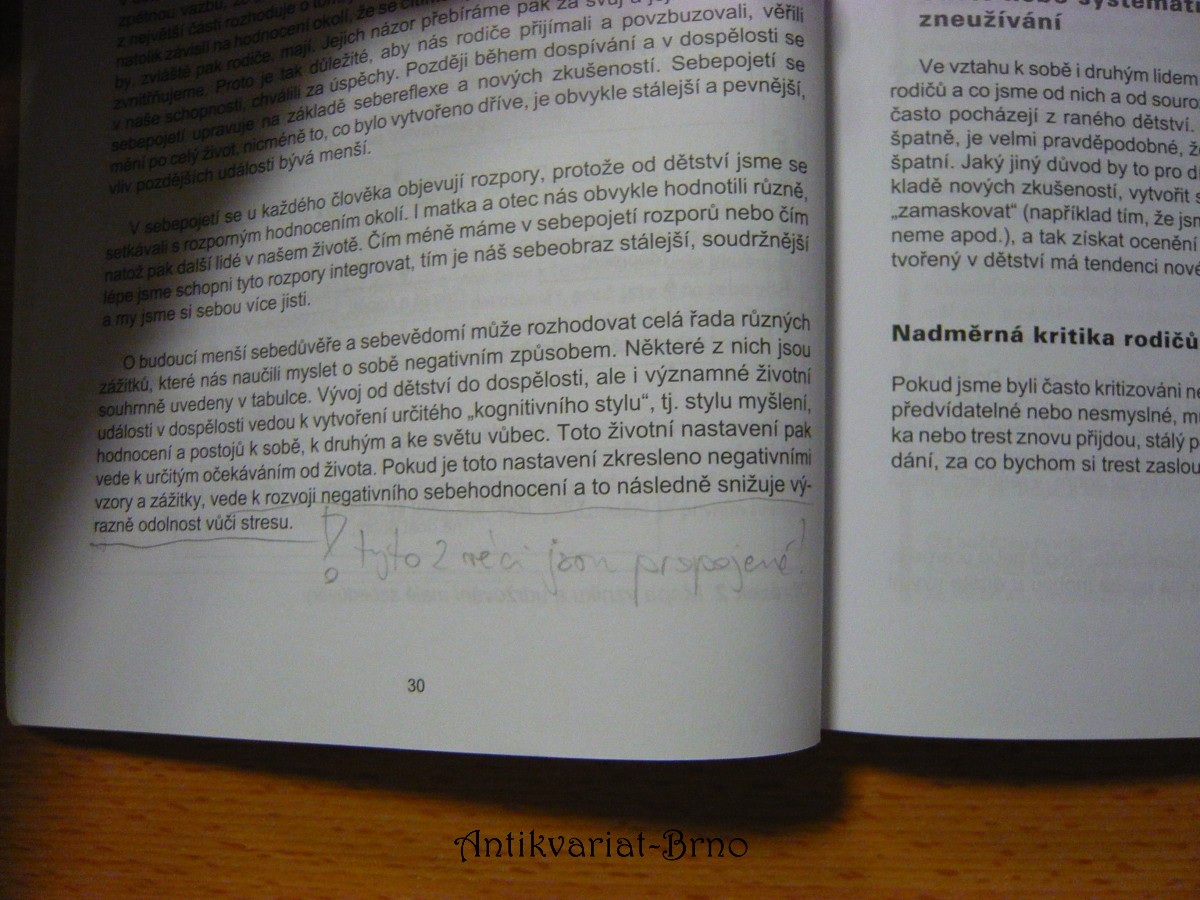 zpětnou vazbu,
z největší části rozhoduje o
natolik závislí na hodnocení okolí, že se
by, zvláště pak rodiče, mají. Jejich názor přebíráme pak za svůj a
zvnitřňujeme. Proto je tak důležité, aby nás rodiče přijímali a povzbuzovali, věřili
v naše schopnosti, chválili za úspěchy. Později během dospívání a v dospělosti se
sebepojetí upravuje na základě sebereflexe a nových zkušeností. Sebepojetí se
mění po celý život, nicméně to, co bylo vytvořeno dříve, je obvykle stálejší a pevnější,
vliv pozdějších událostí bývá menší.
V sebepojetí se u každého člověka objevují rozpory, protože od dětství jsme se
setkávali s rozporným hodnocením okolí. I matka a otec nás obvykle hodnotili různě,
natož pak další lidé v našem životě. Čím méně máme v sebepojetí rozporů nebo čím
lépe jsme schopni tyto rozpory integrovat, tím je náš sebeobraz stálejší, soudržnější
a my jsme si sebou více jisti.
O budoucí menší sebedůvěře a sebevědomí může rozhodovat celá řada různých
zážitků, které nás naučili myslet o sobě negativním způsobem. Některé z nich jsou
souhrnně uvedeny v tabulce. Vývoj od dětství do dospělosti, ale i významné životní
události v dospělosti vedou k vytvoření určitého „kognitivního stylu“, tj. stylu myšlení,
hodnocení a postojů k sobě, k druhým a ke světu vůbec. Toto životní nastavení pak
vede k určitým očekáváním od života. Pokud je toto nastavení zkresleno negativními
vzory a zážitky, vede k rozvoji negativního sebehodnocení a to následně snižuje vý-
razně odolnost vůči stresu.
! tyto 2 věci jsou propojené!
30
nebo systemati
zneužívání
Ve vztahu k sobě i druhým lidem
rodičů a co jsme od nich a od souro
často pocházejí z raného dětství.
špatně, je velmi pravděpodobné, že
špatní. Jaký jiný důvod by to pro d
kladě nových zkušeností, vytvořit s
„zamaskovat“ (například tím, že jsm
neme apod.), a tak získat ocenění
tvořený v dětství má tendenci nové
Nadměrná kritika rodičů
Pokud jsme byli často kritizováni ne
předvídatelné nebo nesmyslné, m
ka nebo trest znovu přijdou, stálý p
dání, za co bychom si trest zaslou
Antikvariat-Brno